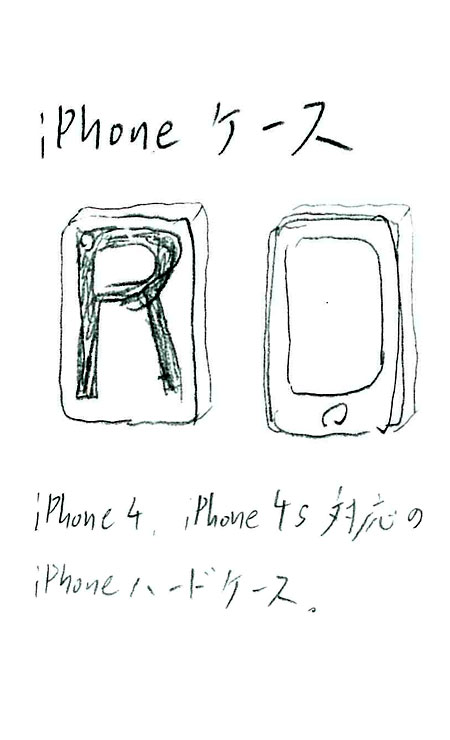 iPhone ケース
R
iPhone 4, iPhone 4s 対応の
iPhone ハードケース。